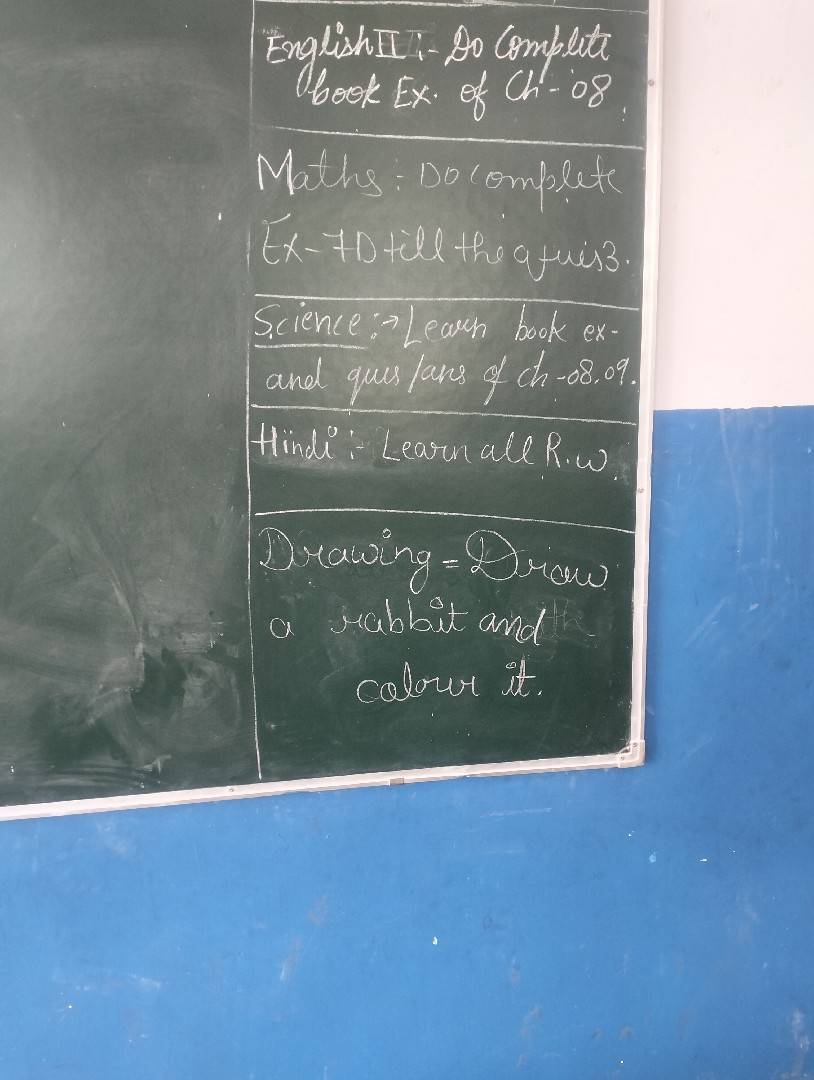 English II :- Do Complete
book Ex. of Ch-08.
Maths :- Do complete
Ex-7D till the q
Science :→ Learn book ex-
and ques/ans of ch-08,09.
Hindi :- Learn all R.w.
Drawing = Draw
a rabbit and
colour it.